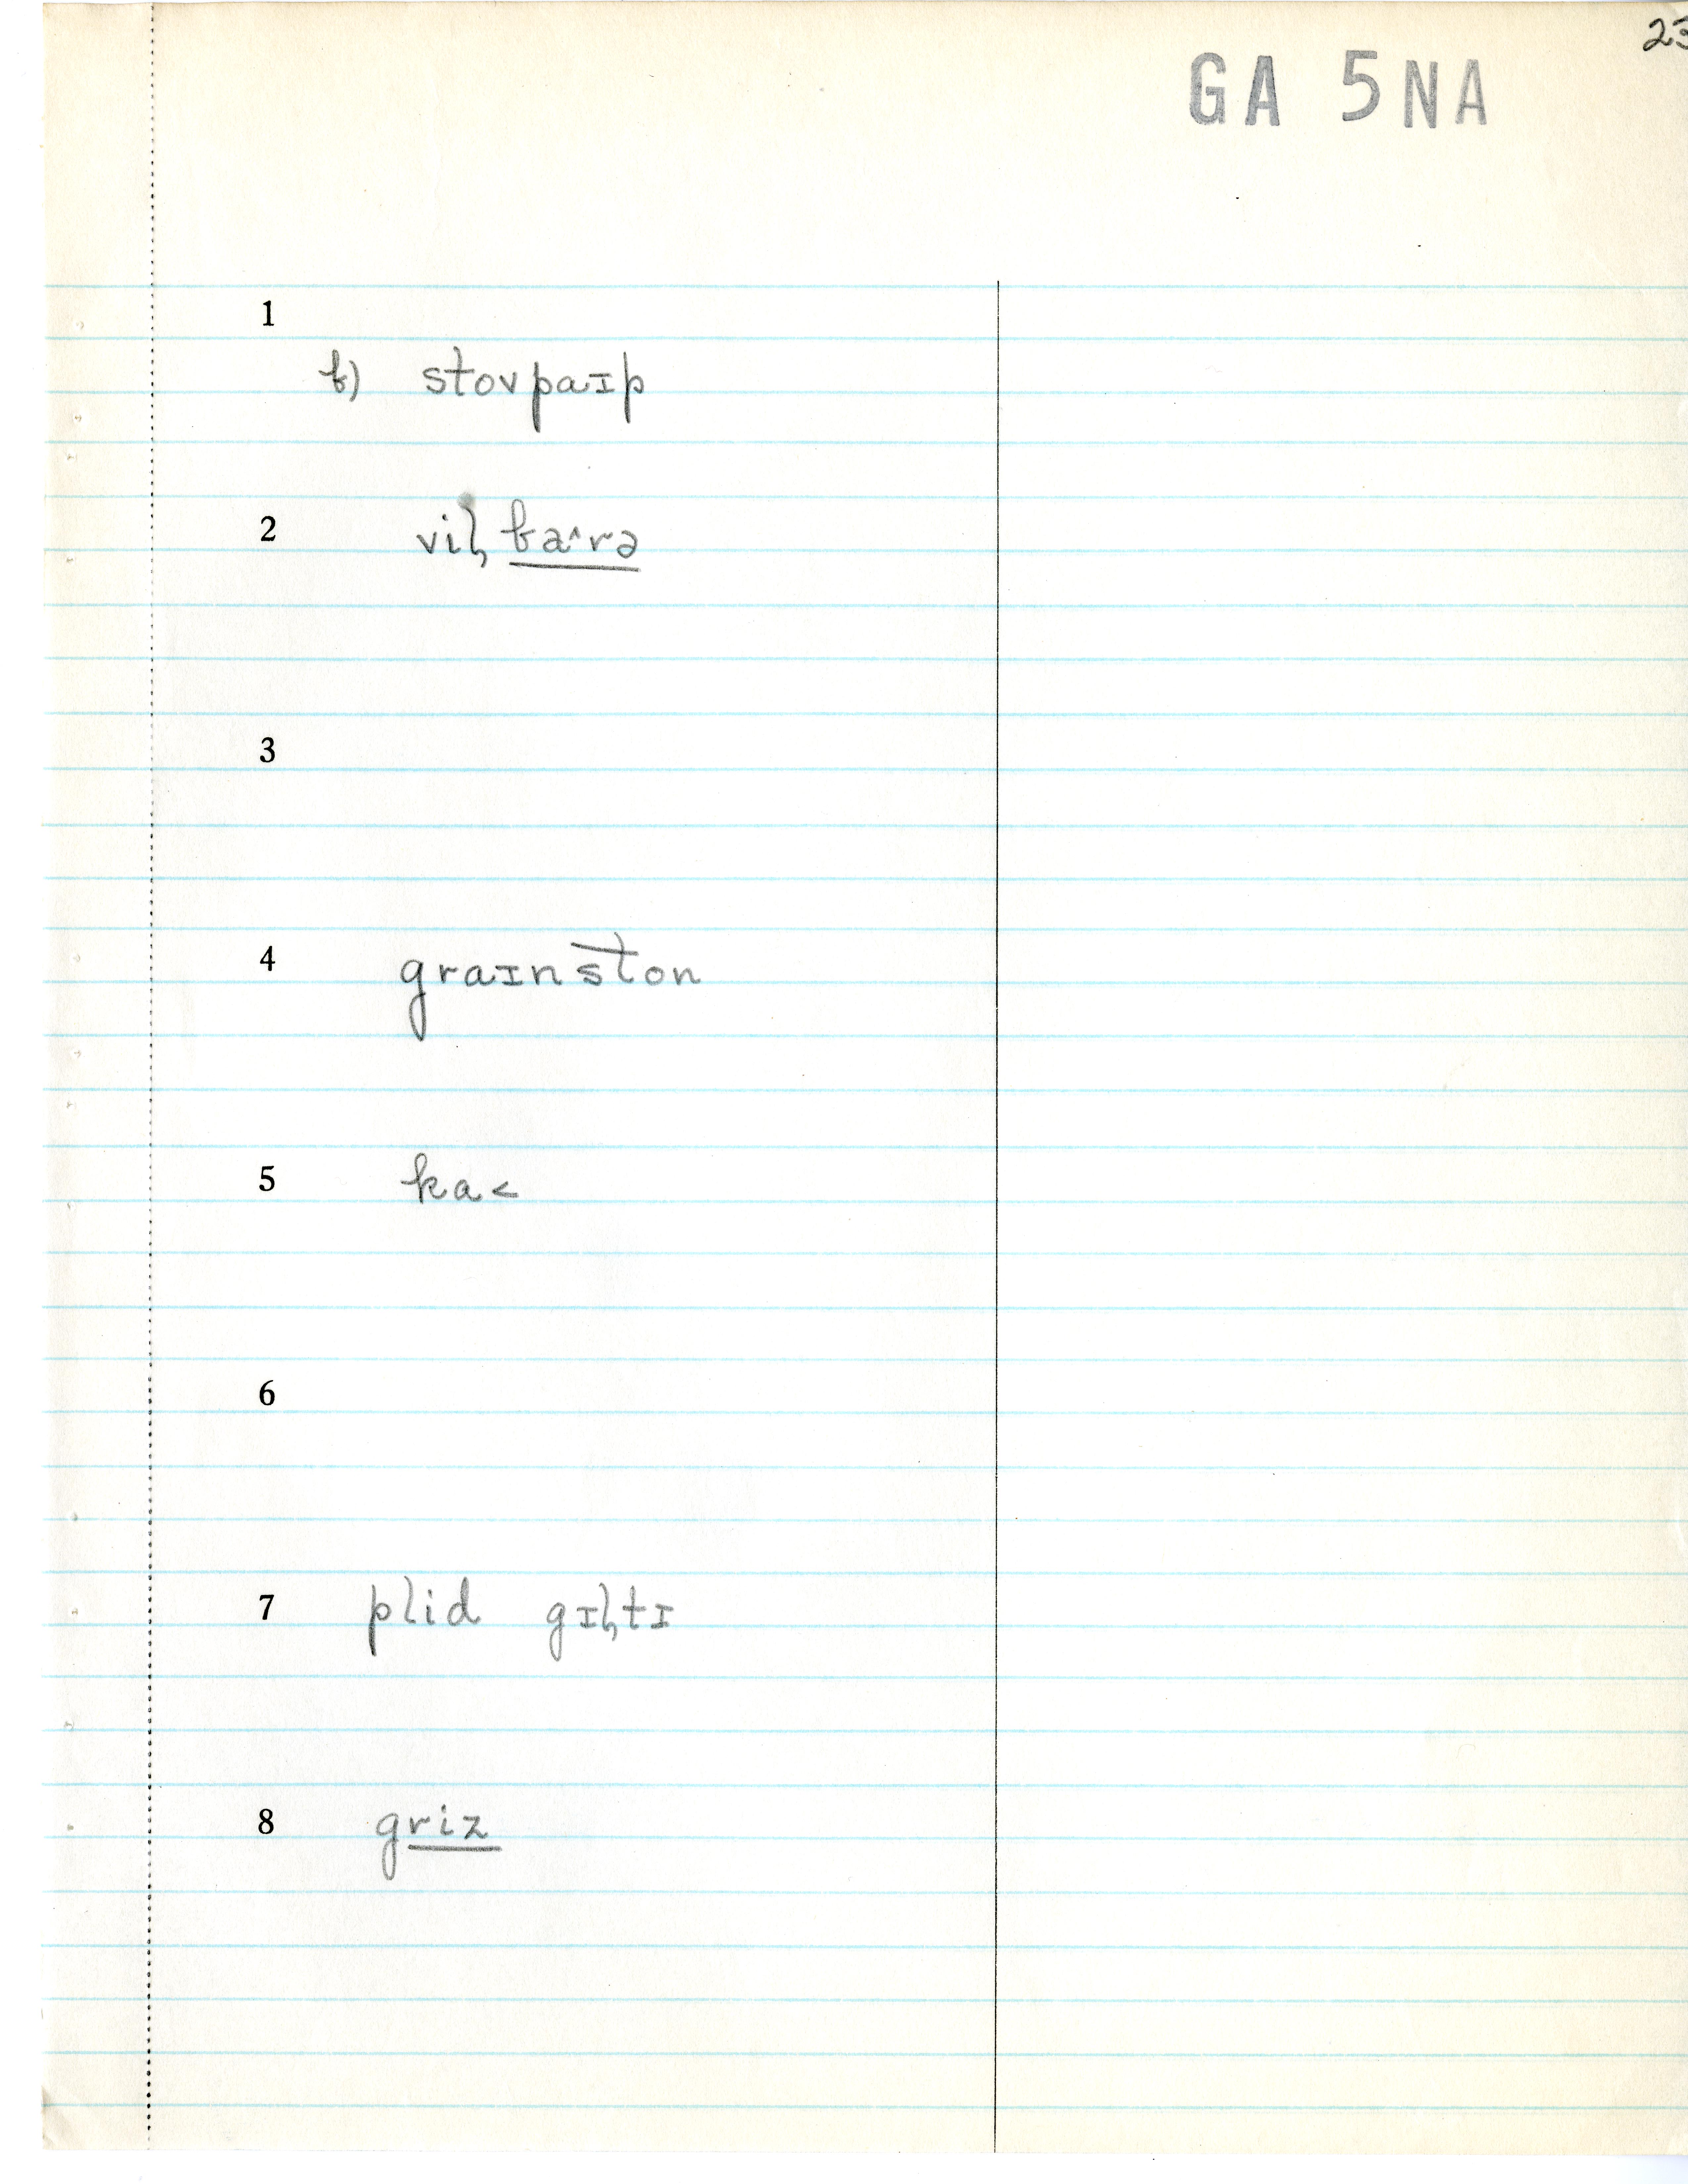 23
GA 5NA
1
b) stovpaɪp
2 vil̡ baˆrə
3
4 graɪnston
5 ka<
6
7 plid gɪl̡tɪ
8 griz